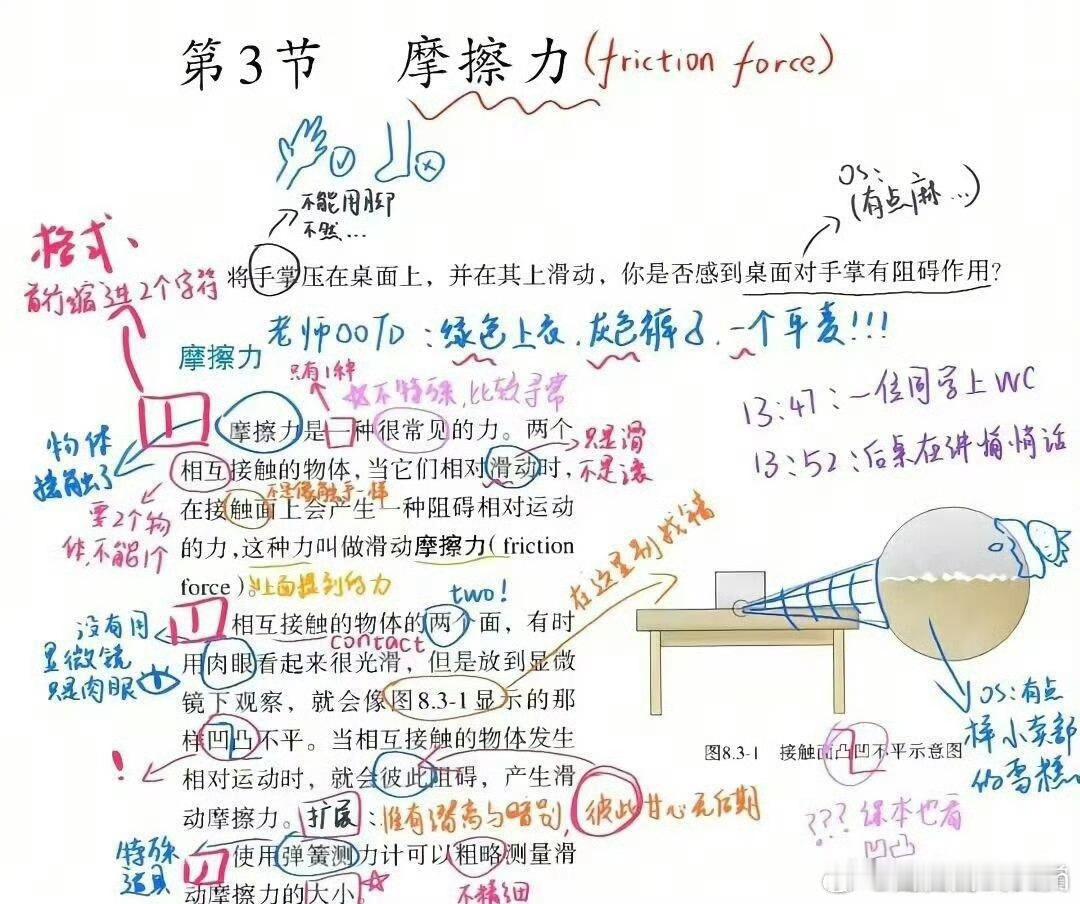 第3节 摩擦力(friction force)
不能用脚
不然...
OS:
(有点麻...)
格式、
首行缩进2个字符
将手掌压在桌面上，并在其上滑动，你是否感到桌面对手掌有阻碍作用？
老师OOTD：绿色上衣，灰色裤子，一个耳麦!!!
摩擦力
只有1种
☆不特殊，比较寻常
13:47：一位同学上WC
13:52：后桌在讲悄悄话
物体
接触了
摩擦力是一种很常见的力。两个
相互接触的物体，当它们相对滑动时，
只是滑
不是滚
要2个物
体，不能1个
不是像触手一样
在接触面上会产生一种阻碍相对运动
的力，这种力叫做滑动摩擦力(friction
force)。
上面提到的力
two!
在这里别找错
没有用
显微镜
只是肉眼
相互接触的物体的两个面，有时
contact
用肉眼看起来很光滑，但是放到显微
镜下观察，就会像图8.3-1显示的那
样凹凸不平。当相互接触的物体发生
!
相对运动时，就会彼此阻碍，产生滑
动摩擦力。
扩展：惟有潜离与暗别，彼此甘心无后期
特殊
道具
使用弹簧测力计可以粗略测量滑
动摩擦力的大小。
不精细
图8.3-1 接触面凸凹不平示意图
OS：有点
样小卖部
的雪糕。
???课本也看
凹凸